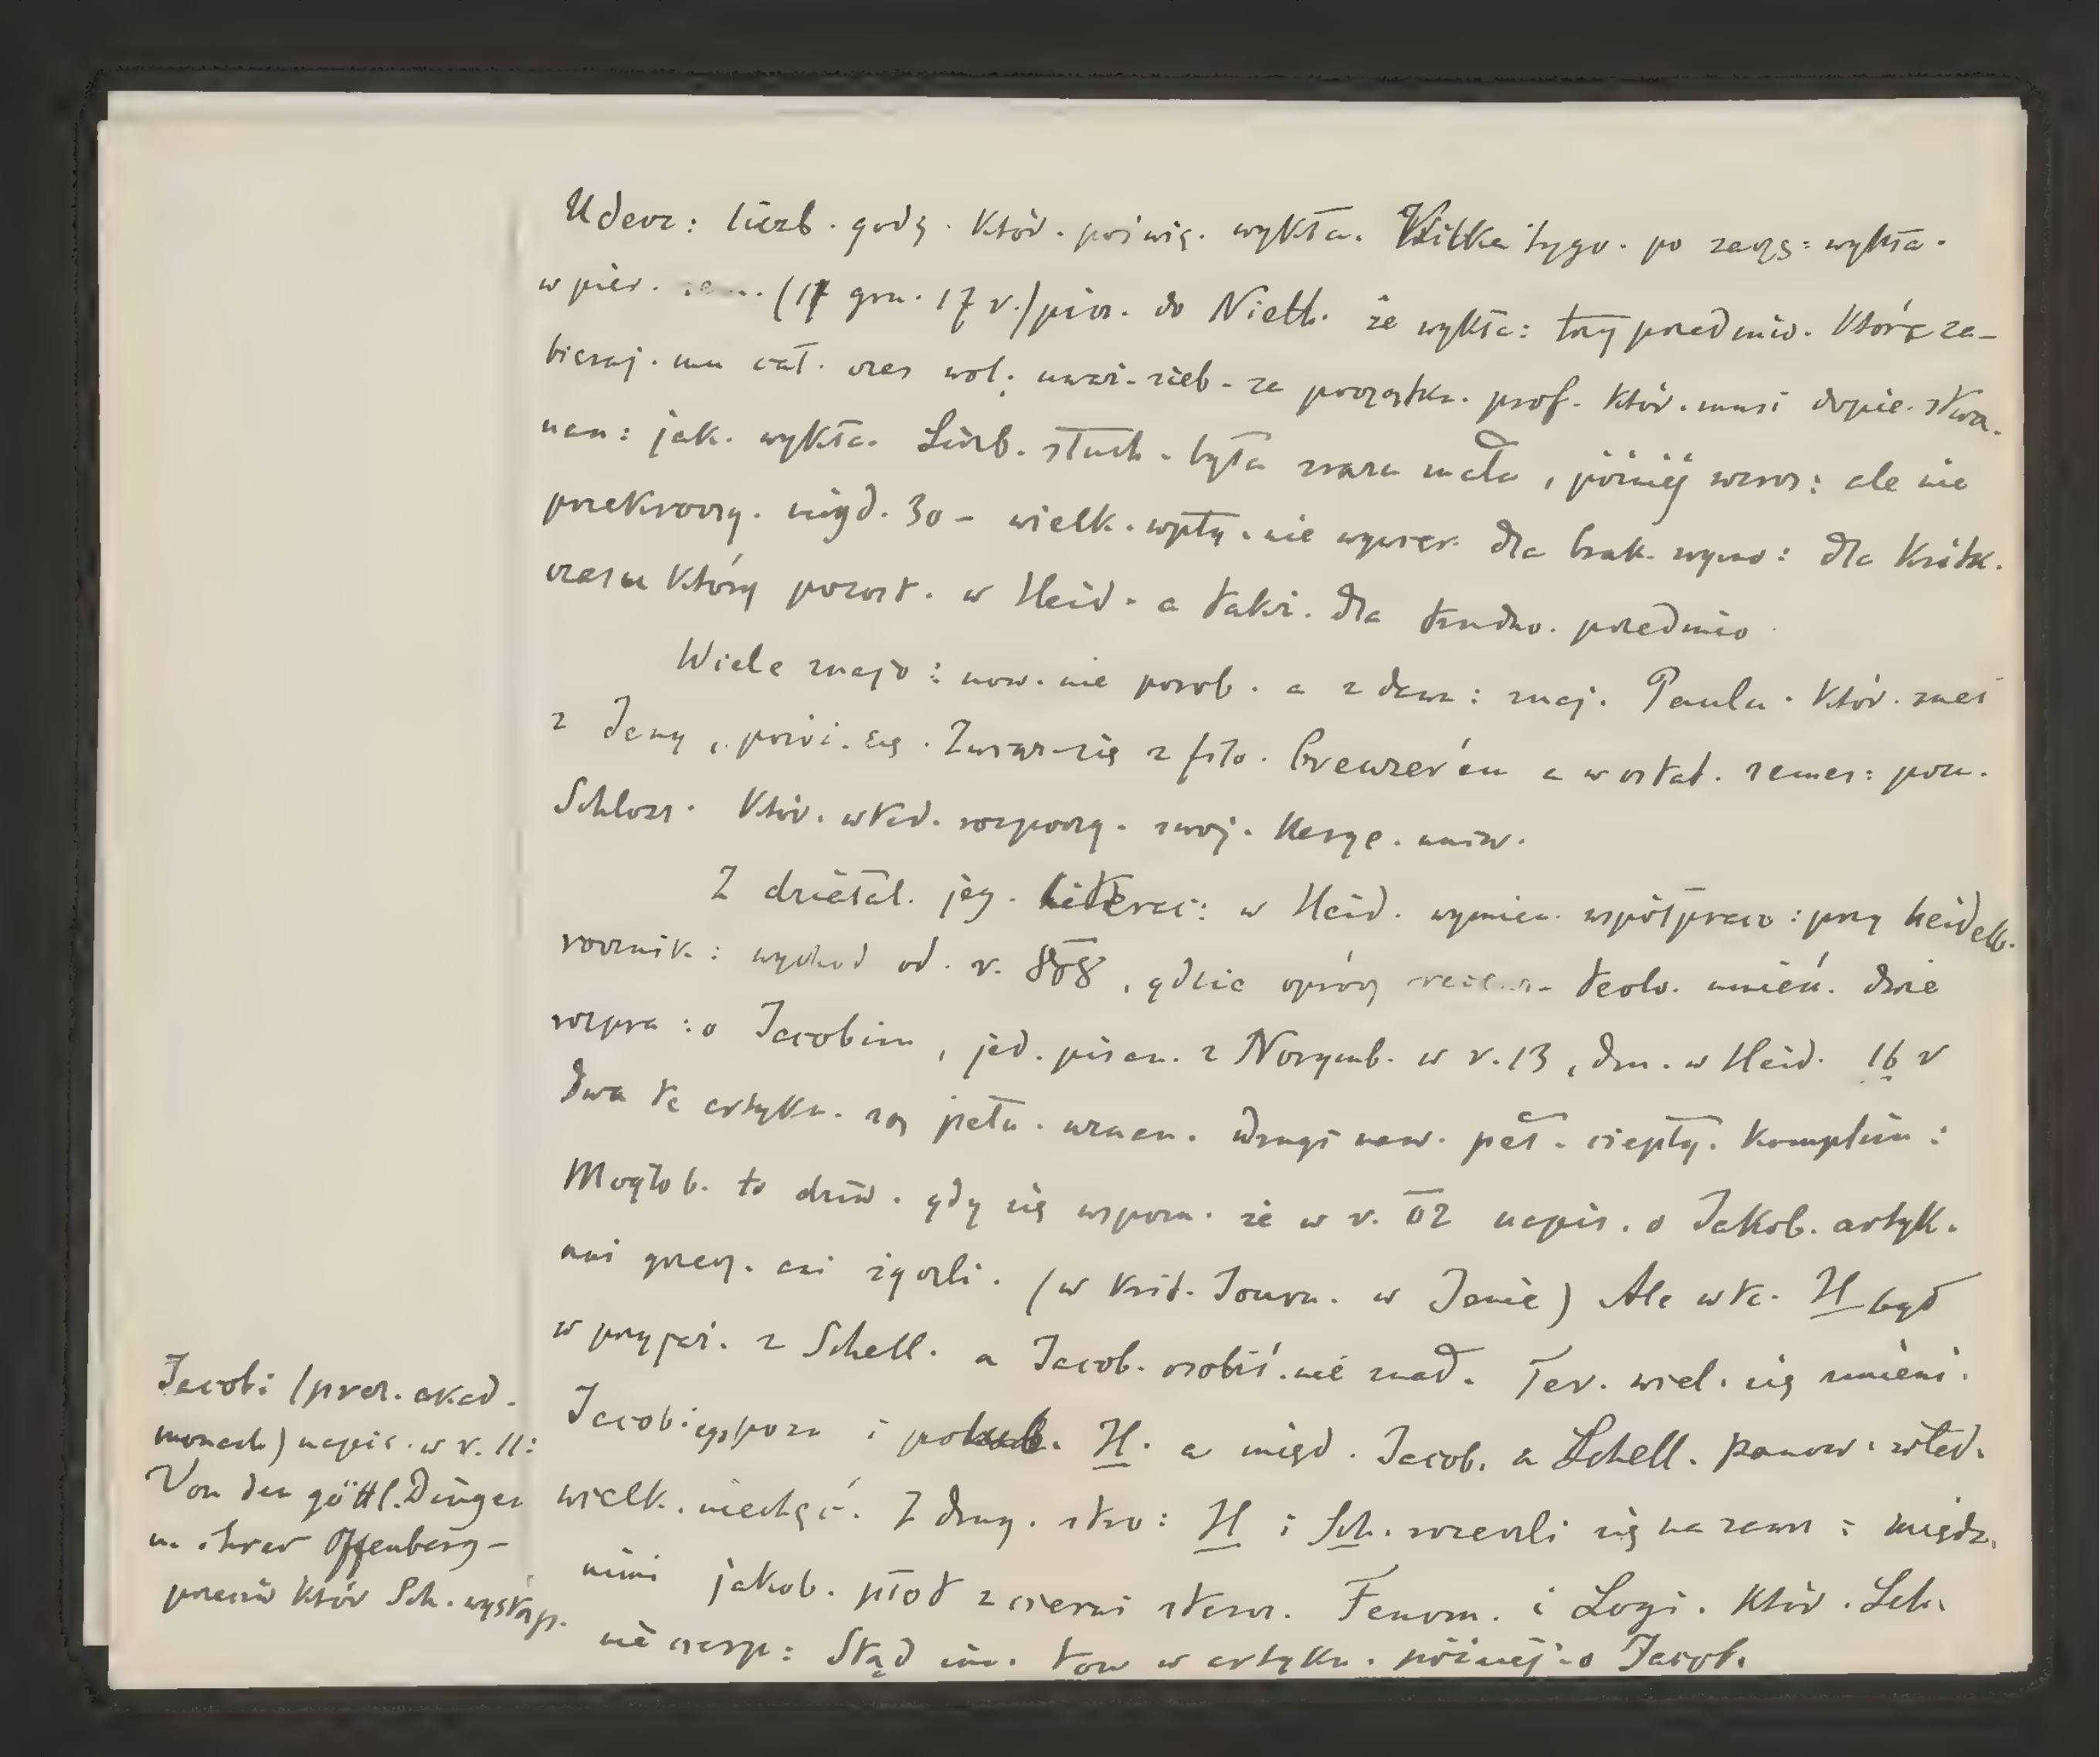 Uderz: liczb. godz. któr. poświę. wykła. Kilka tygo. po zaczę: wykła.
w pier. sem. (17 gru. 17 r.) pisz. do Nieth. że wykła: trzy przedmio. które za-
bieraj. mu cał. czas wol; uważ. sieb. za początku. prof. któr. musi dopie. stwa.
nau: jak. wykła. Liczb. słuch. była zrazu mała, później wzros: ale nie
przekroczy. nigd. 30 - wielk. wpły. nie wywier. dla brak. wymo: dla krótk.
czasu który pozost. w Heid. a takż. dla trudno. przedmio.
Wiele znajo: now. nie porob. a z daw: znaj. Paulu. któr. znał
z Jeny, poróż. się. Zwiąż. się z filo. Creuzer'em a w ostat. semes: pozn.
Schloss. któr. wted. rozpoczy. swoj. karye. uniw.
Z działal. jeg. literac: w Heid. wymien. współpraco: przy heidelb.
rocznik: wychod od. r. 808, gdzie oprócz teolo. umieśc. dwie
rozpra: o Jacobim, jed. pisan. z Norymb. w r. 13, dru. w Heid. 16 r
Dwa te artyku. są pełn. uznan. drugi naw. peł. ciepły. komplim:
Mogłob. to dziw. gdy się wspom. że w r. 02 napis. o Jakob. artyk.
ani grzecz. ani życzli. (w krit. Journ. w Jenie) Ale wte. H był
w przyjaź. z Schell. a Jacob. osobiś. nie znał. Ter. wiel. się zmieni.
Jacobiego pozn i polub. H. a międ. Jacob. a Schell. panow. wted.
wielk. niechęć. Z drug. stro: H i Sch. rozeszli się na zaws: międz.
nimi jakob. płot z cierni sterw. Fenom. i Logi. któr. Sch.
nie cierp: Stąd inn. ton w artyku. później. o Jacob.
Jacobi (prez. akad.
monach) napis. w r. 11:
Von den göttl. Dingen
u. ihrer Offenbarg-
przeciw któr Sch. wystąp.